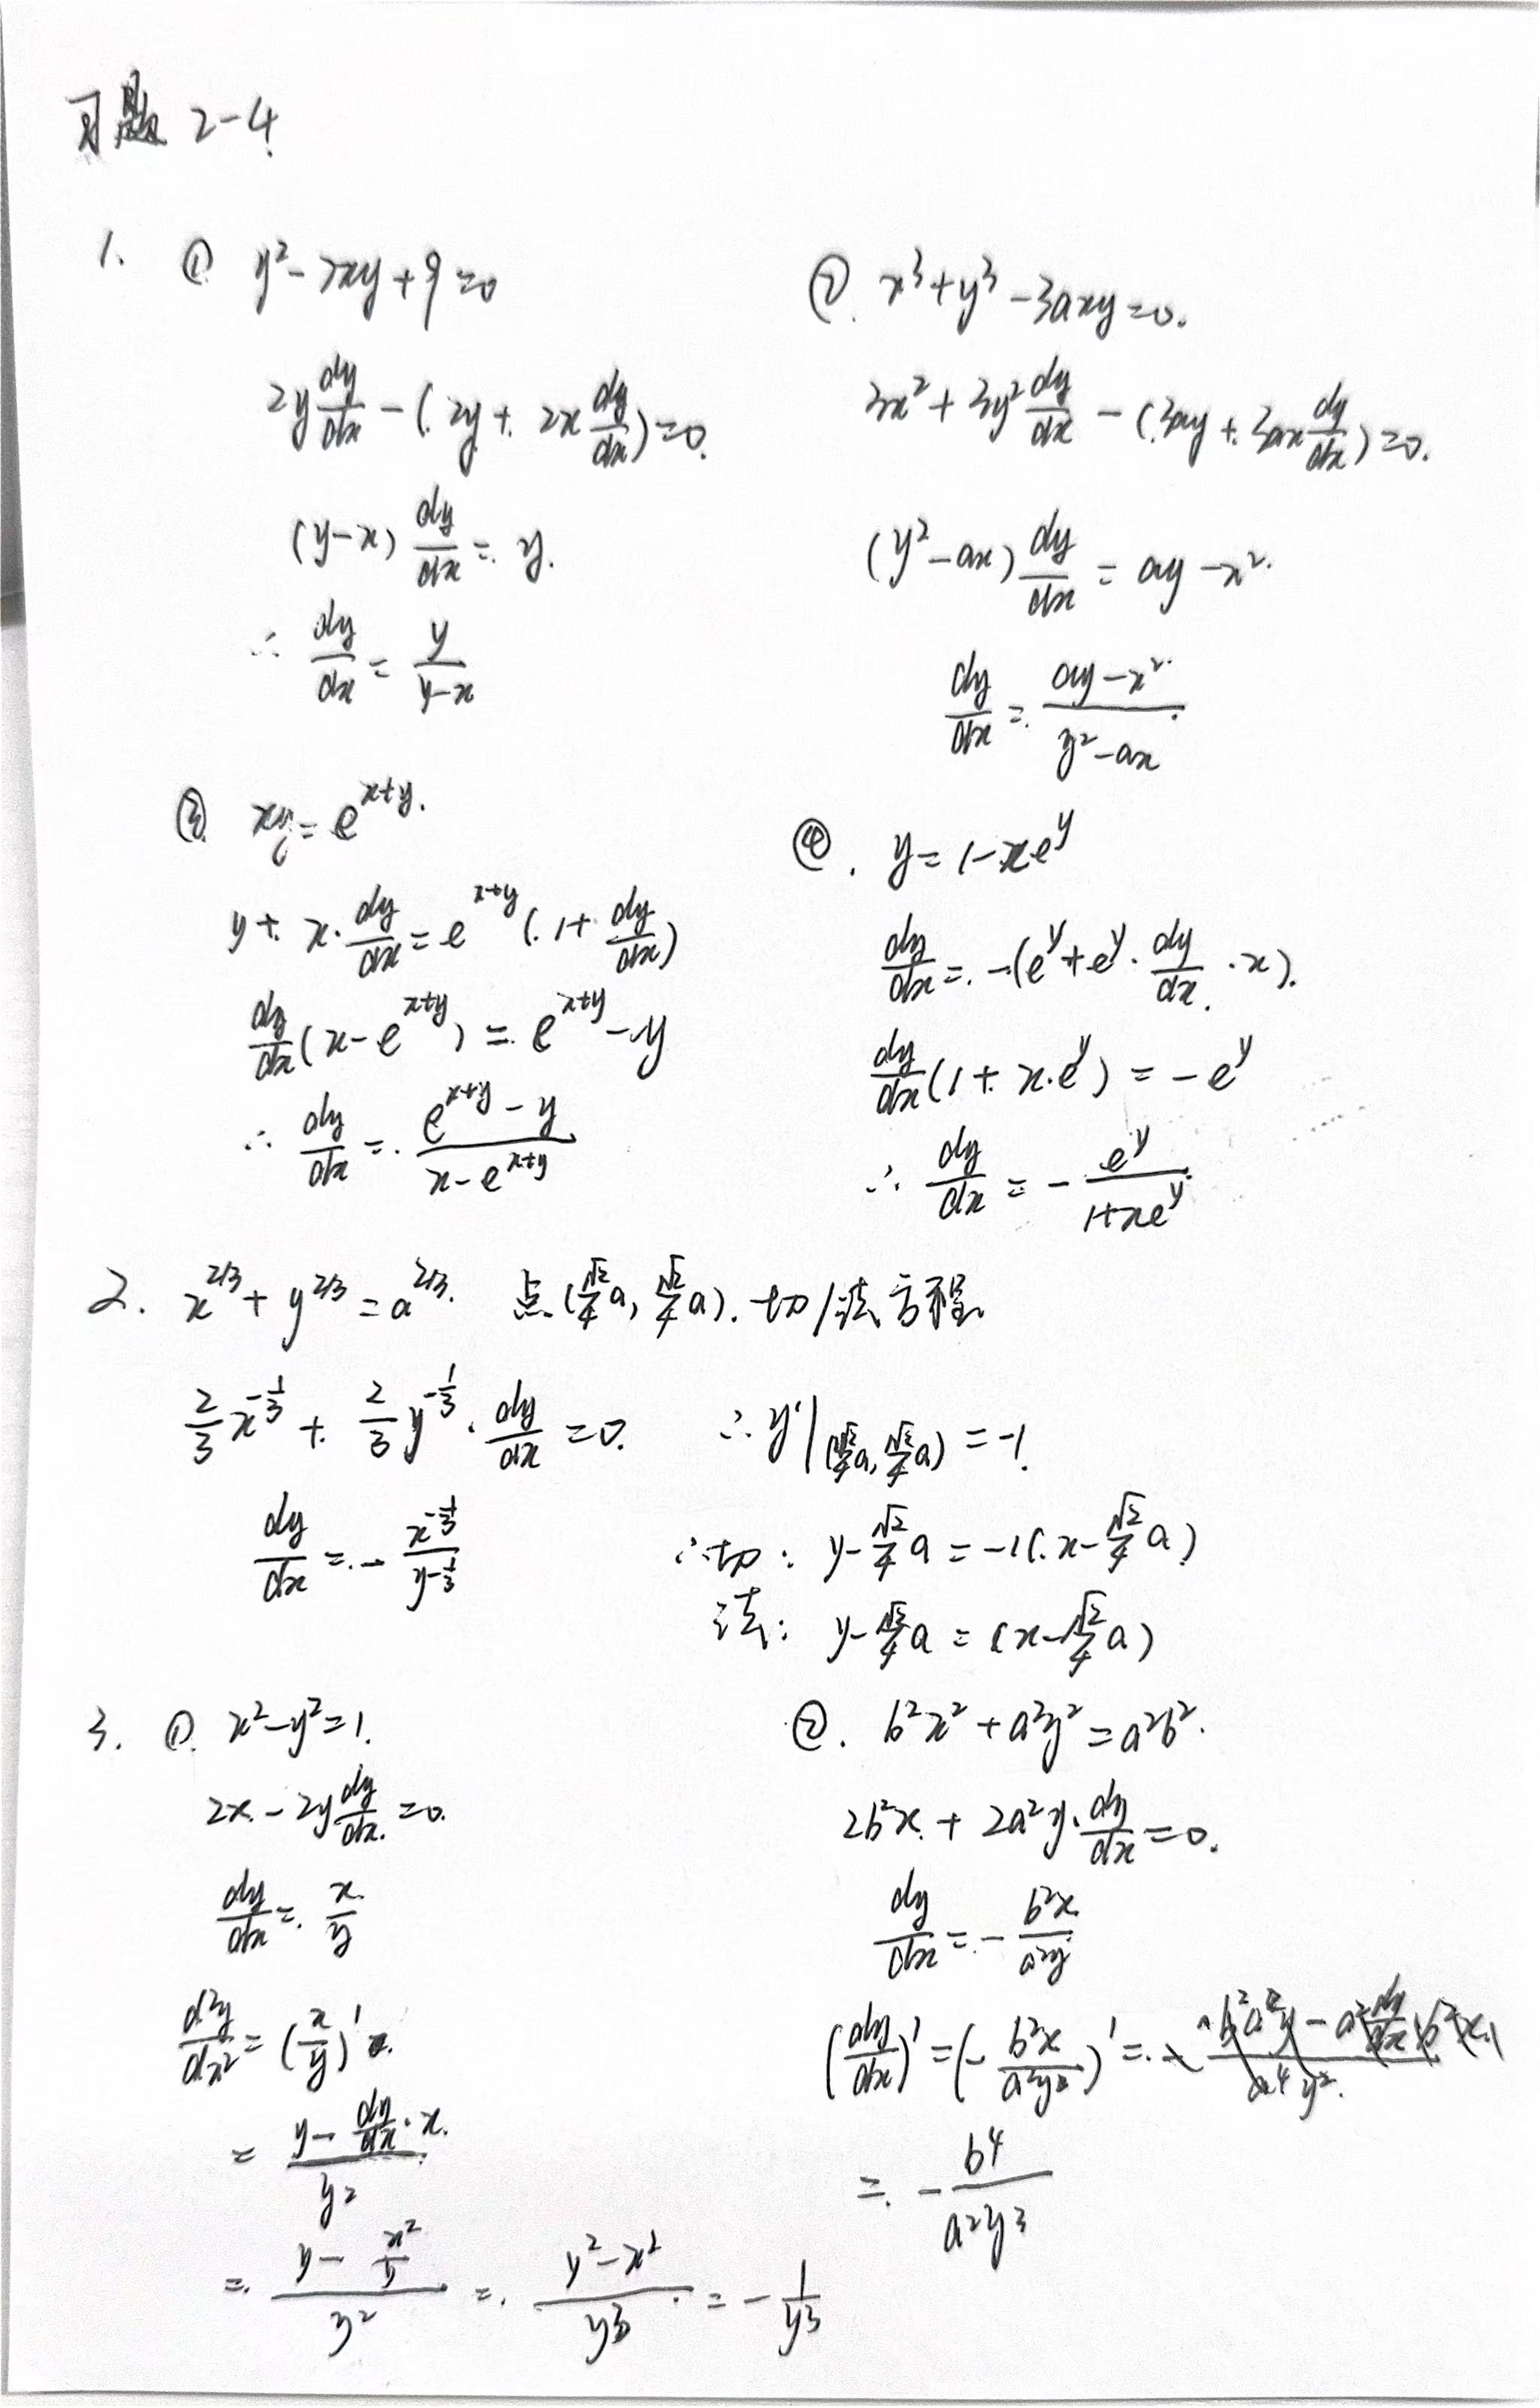 习题 2-4
1. ① y²-2xy+9=0
2y dy/dx - (2y + 2x dy/dx)=0.
(y-x) dy/dx = y.
∴ dy/dx = y/(y-x)
②. x³+y³-3axy=0.
3x²+3y² dy/dx - (3ay + 3ax dy/dx)=0.
(y²-ax) dy/dx = ay-x².
dy/dx = (ay-x²)/(y²-ax)
③ xy = e^(x+y).
y + x· dy/dx = e^(x+y) (1+ dy/dx)
dy/dx (x-e^(x+y)) = e^(x+y) - y
∴ dy/dx = (e^(x+y) - y)/(x-e^(x+y))
④. y = 1-xe^y
dy/dx = -(e^y+e^y· dy/dx ·x).
dy/dx (1+x·e^y) = -e^y
∴ dy/dx = - e^y/(1+xe^y)
2. x^(2/3) + y^(2/3) = a^(2/3). 点(√2/4 a, √2/4 a). 切/法方程
2/3 x^(-1/3) + 2/3 y^(-1/3) · dy/dx = 0.
dy/dx = - x^(-1/3)/y^(-1/3)
∴ y'|(√2/4 a, √2/4 a) = -1.
∴切: y-√2/4 a = -1(x-√2/4 a)
法: y-√2/4 a = (x-√2/4 a)
3. ①. x²-y²=1.
2x-2y dy/dx = 0.
dy/dx = x/y
d²y/dx² = (x/y)'
= (y - dy/dx · x)/y²
= (y - x²/y)/y² = (y²-x²)/y³ = - 1/y³
②. b²x²+a²y²=a²b².
2b²x + 2a²y· dy/dx = 0.
dy/dx = - b²x/a²y
(dy/dx)' = (- b²x/a²y)' =
= - b⁴/a²y³